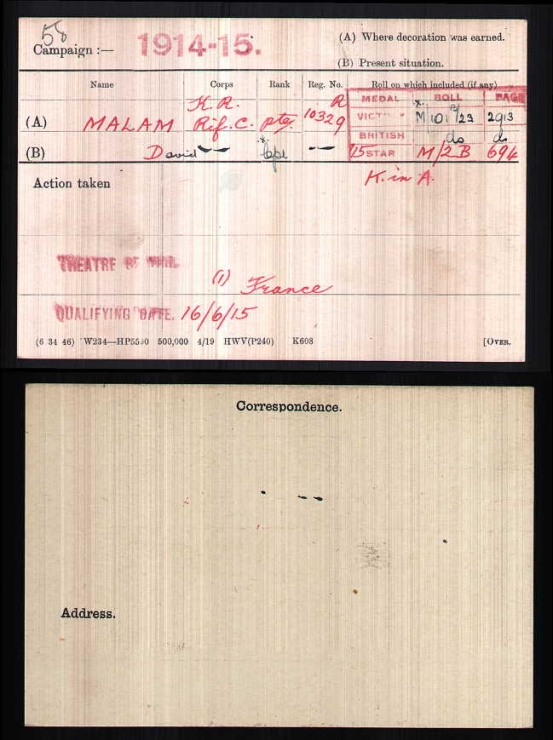 58
Campaign :— 1914-15.
(A) Where decoration was earned.
(B) Present situation.
Name Corps Rank Reg. No. Roll on which included (if any)
K.R. R MEDAL ROLL PAGE
(A) MALAM Rif. C. Pte 10329 VICTY M/101 23 2913
BRITISH do do
(B) David — Cpl — 15 STAR M/2B 694
Action taken K. in A.
THEATRE OF WAR. (1) France
QUALIFYING DATE. 16/6/15
(6 34 46) W234—HP5590 500,000 4/19 HWV(P240) K608 [OVER.
Correspondence.
Address.